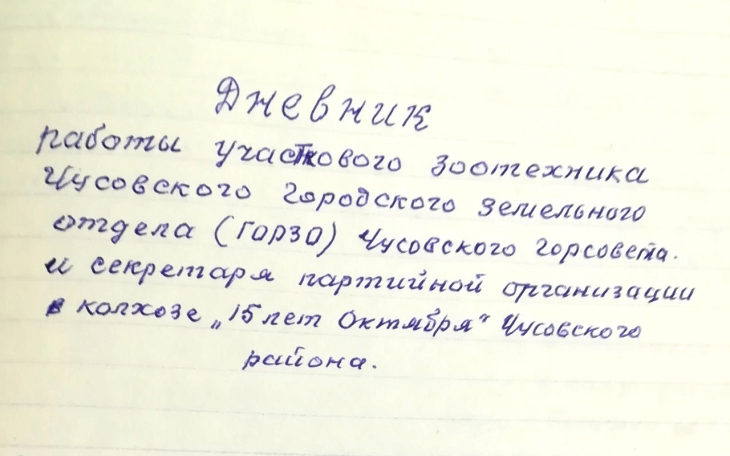 Дневник
работы участкового зоотехника
Чусовского городского земельного
отдела (горзо) Чусовского горсовета.
и секретаря партийной организации
в колхозе „15 лет Октября" Чусовского
района.